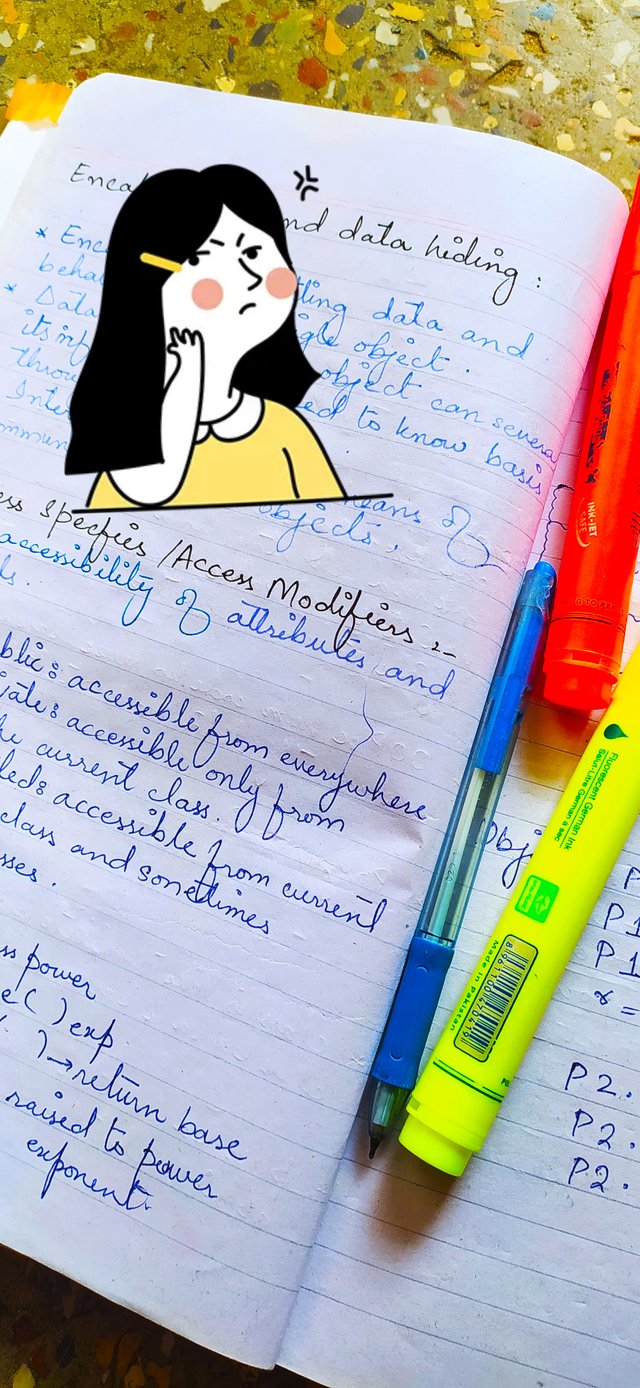 nd data hiding :
* Enc ting data and
beha gle object.
* Data object can
its inf ed to know basis
throu
Inte
ommun means of
objects.
ess Specfies / Access Modifiers :-
accessibility of attributes and
ls.
blic : accessible from everywhere
iate : accessible only from
he current class.
ted : accessible from current
class and sometimes
sses.
ss power
e( ) exp.
) → return base
raised to power
exponent.
INK-JET
SAFE
Fluorescent German Ink
Made in Pakistan
8961100470419
Obj
P
P1
P1
x =
P2.
P2.
P2.